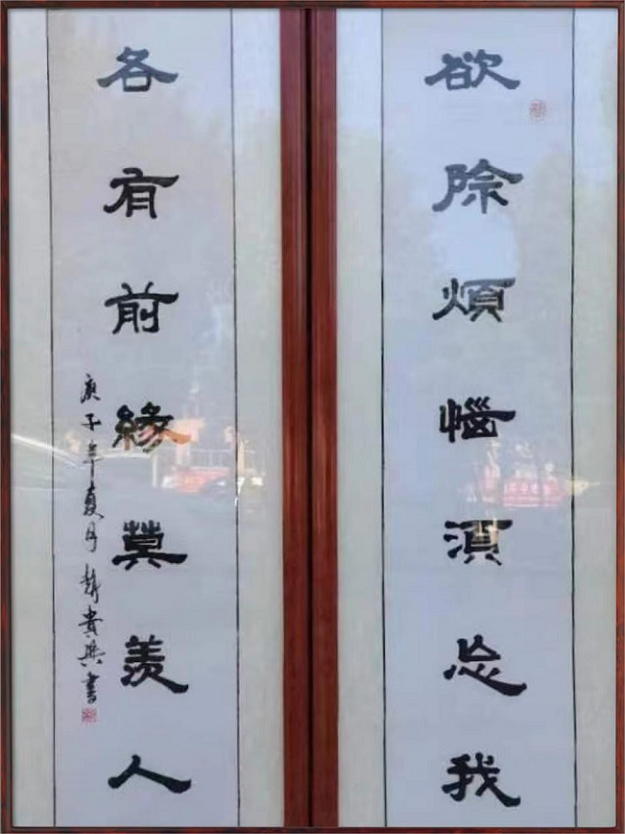 欲除煩惱須忘我
各有前緣莫羡人
庚子年夏月韓貴興書